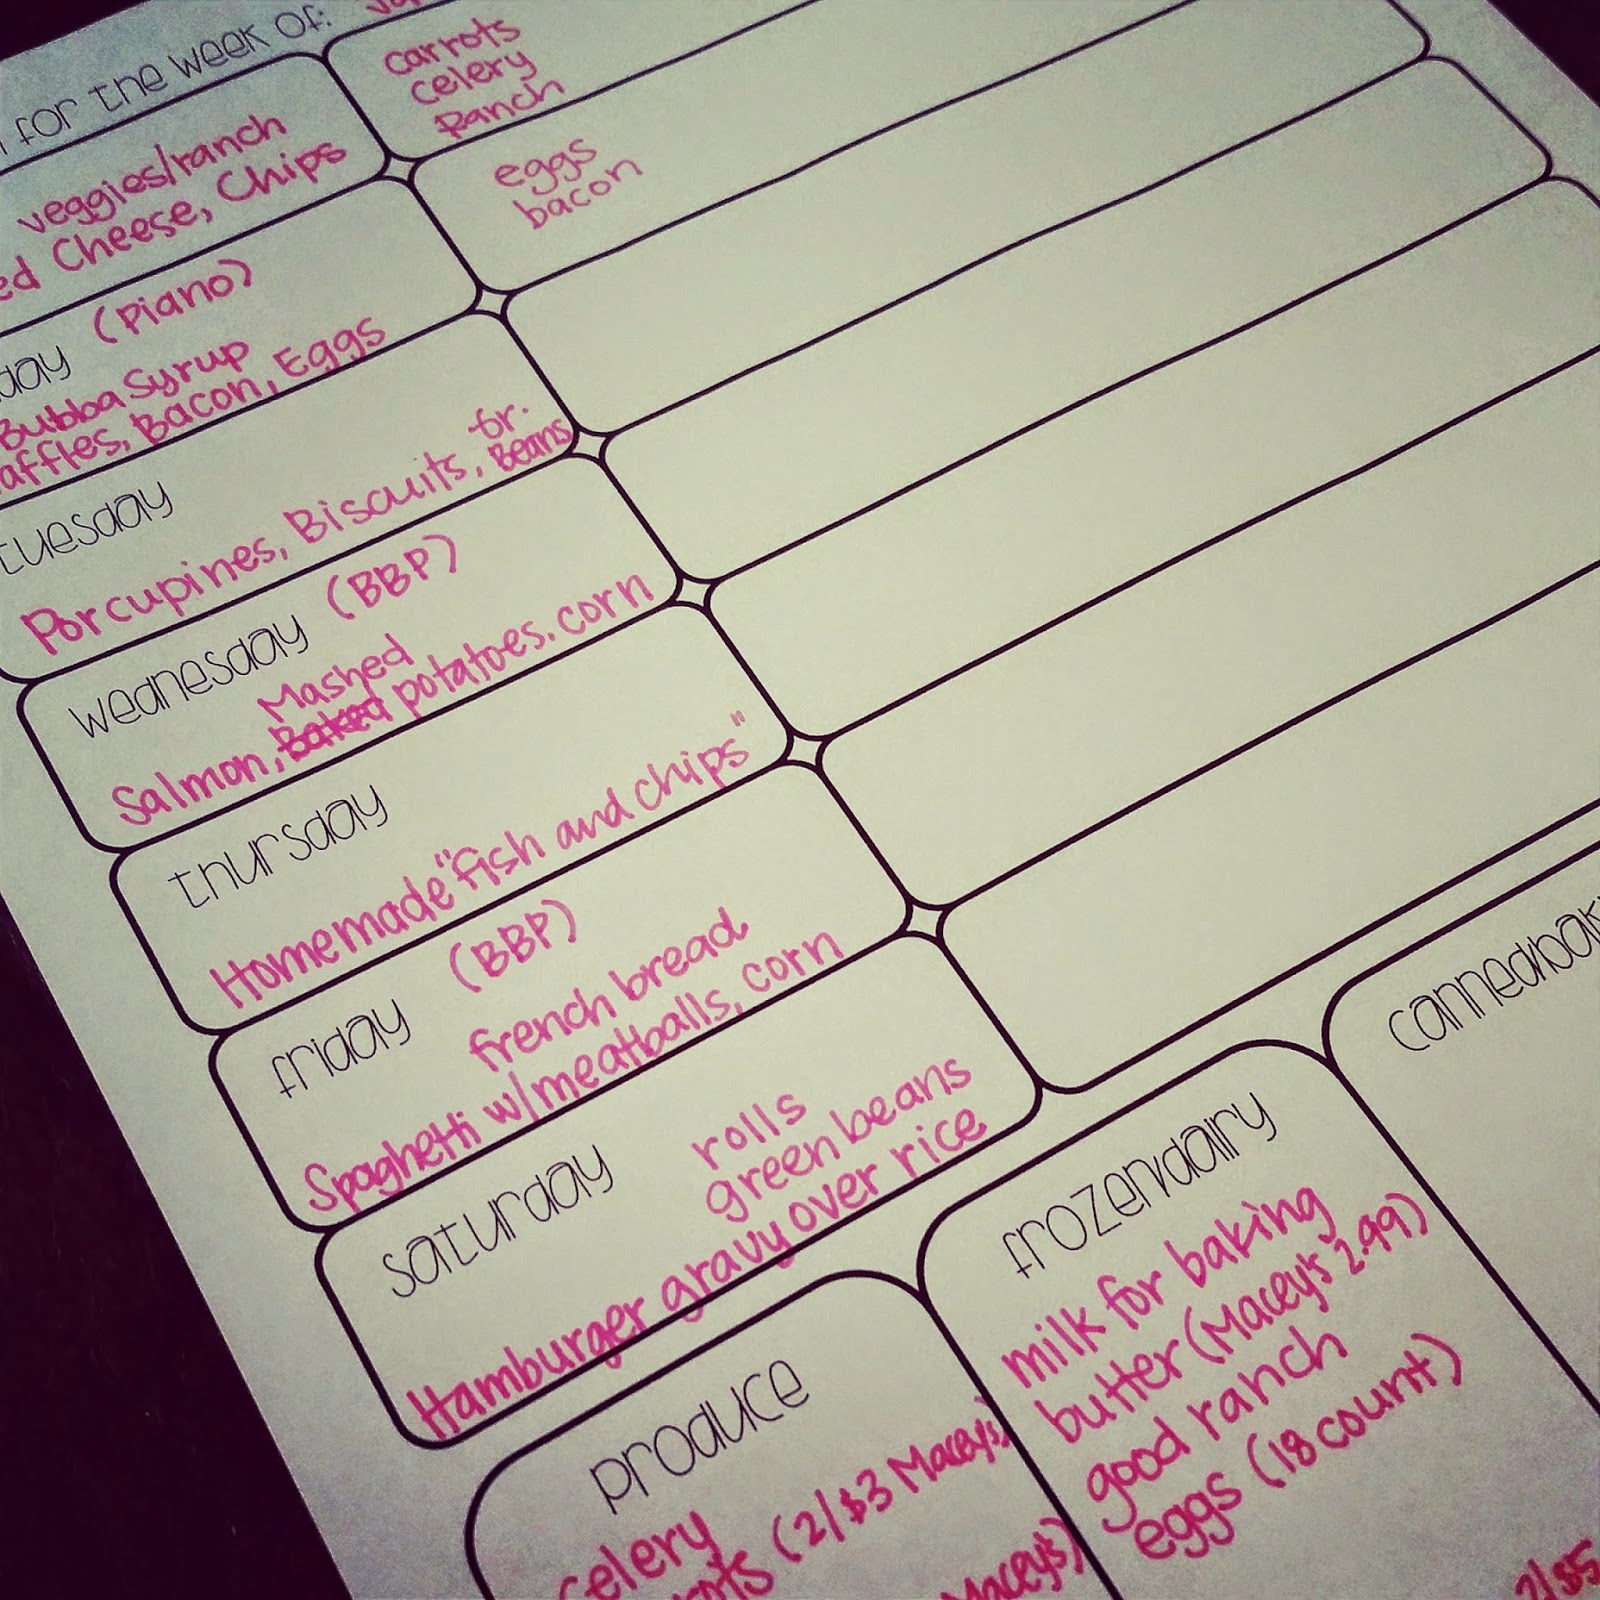 for the week of:
veggies/ranch
Cheese, Chips
carrots
celery
Ranch
(Piano)
Bubba Syrup
Bacon, Eggs
eggs
bacon
tuesday
Gr.
Porcupines, Biscuits, Beans
wednesday (BBP)
Mashed
Salmon, Baked potatoes, corn
thursday
Homemade "fish and chips"
friday (BBP)
french bread
Spaghetti w/meatballs, corn
saturday
rolls
green beans
Hamburger gravy over rice
produce
celery
(2/$3 Macey's)
Macey's)
frozen/dairy
milk for baking
butter (Macey's 2.99)
good ranch
eggs (18 count)
2/$5